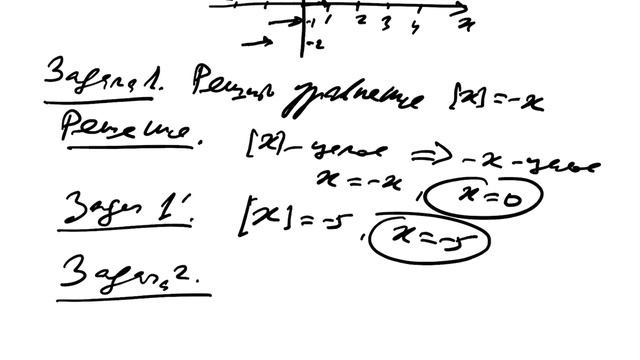 -1 1 2 3 4 x
-2
Задача 1. Решить уравнение [x] = -x
Решение. [x] - целое => -x - целое
x = -x, x = 0
Задач 1'. [x] = -5, x = -5
Задача 2.